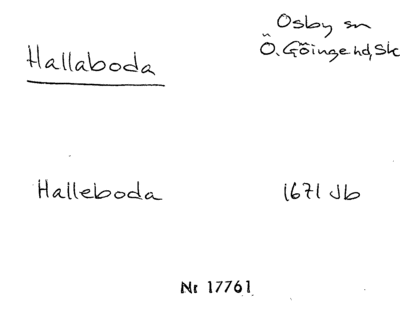 Hallaboda
Osby sn
Ö. Göinge hd, Sk
Halleboda 1671 Jb
Nr 17761